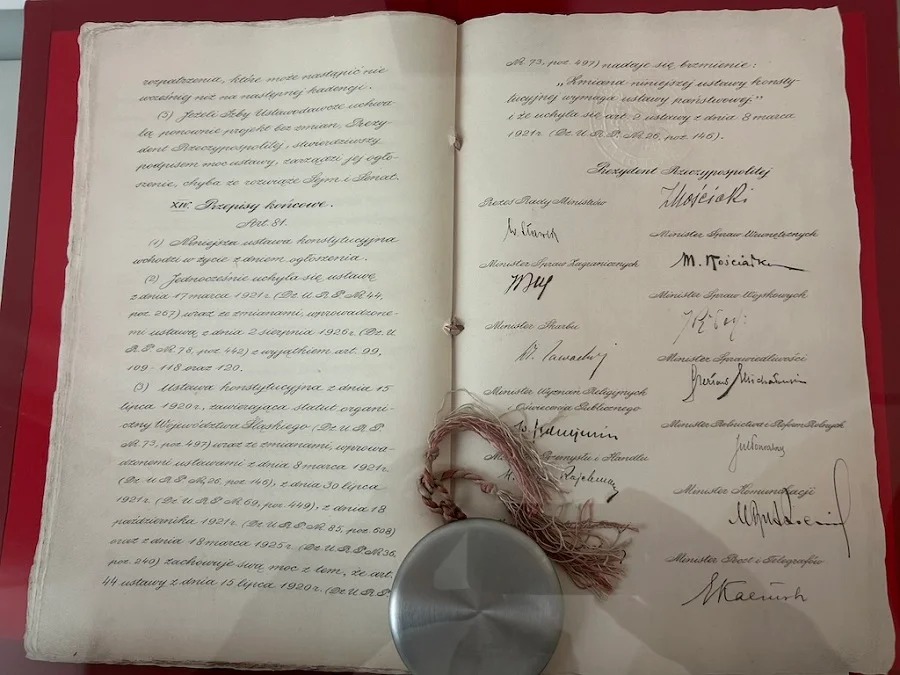 rozpatrzenia, które może nastąpić nie
wcześniej niż na następnej kadencji.
(5) Jeżeli Izby Ustawodawcze uchwa-
lą ponownie projekt bez zmian, Prezy-
dent Rzeczypospolitej, stwierdziwszy
podpisem moc ustawy, zarządzi jej ogło-
szenie, chyba że rozwiąże Sejm i Senat.
XIV. Przepisy końcowe.
Art. 81.
(1) Niniejsza ustawa konstytucyjna
wchodzi w życie z dniem ogłoszenia.
(2) Jednocześnie uchyla się ustawę
z dnia 17 marca 1921 r. (Dz. U. R. P. № 44,
poz. 267) wraz ze zmianami, wprowadzone-
mi ustawą z dnia 2 sierpnia 1926 r. (Dz. U.
R. P. № 78, poz. 442) z wyjątkiem art. 99,
109-118 oraz 120.
(3) Ustawa konstytucyjna z dnia 15
lipca 1920 r., zawierająca statut organi-
czny Województwa Śląskiego (Dz. U. R. P.
№ 73, poz. 497) wraz ze zmianami, wprowa-
dzonemi ustawami z dnia 8 marca 1921 r.
(Dz. U. R. P. № 26, poz. 146), z dnia 30 lipca
1921 r. (Dz. U. R. P. № 69, poz. 449), z dnia 18
października 1921 r. (Dz. U. R. P. № 85, poz. 608)
oraz z dnia 18 marca 1925 r. (Dz. U. R. P. № 36,
poz. 240) zachowuje swą moc z tem, że art.
44 ustawy z dnia 15 lipca 1920 r. (Dz. U. R. P.
№ 73, poz. 497) nadaje się brzmienie:
„Zmiana niniejszej ustawy konsty-
tucyjnej wymaga ustawy państwowej"
i że uchyla się art. 2 ustawy z dnia 8 marca
1921 r. (Dz. U. R. P. № 26, poz. 146).
Prezydent Rzeczypospolitej
I Mościcki
Prezes Rady Ministrów
W Sławek
Minister Spraw Wewnętrznych
Minister Spraw Zagranicznych
Minister Spraw Wojskowych
Minister Skarbu
Minister Sprawiedliwości
Minister Wyznań Religijnych
i Oświecenia Publicznego
Minister Rolnictwa i Reform Rolnych
Przemysłu i Handlu
Minister Komunikacji
Minister Poczt i Telegrafów